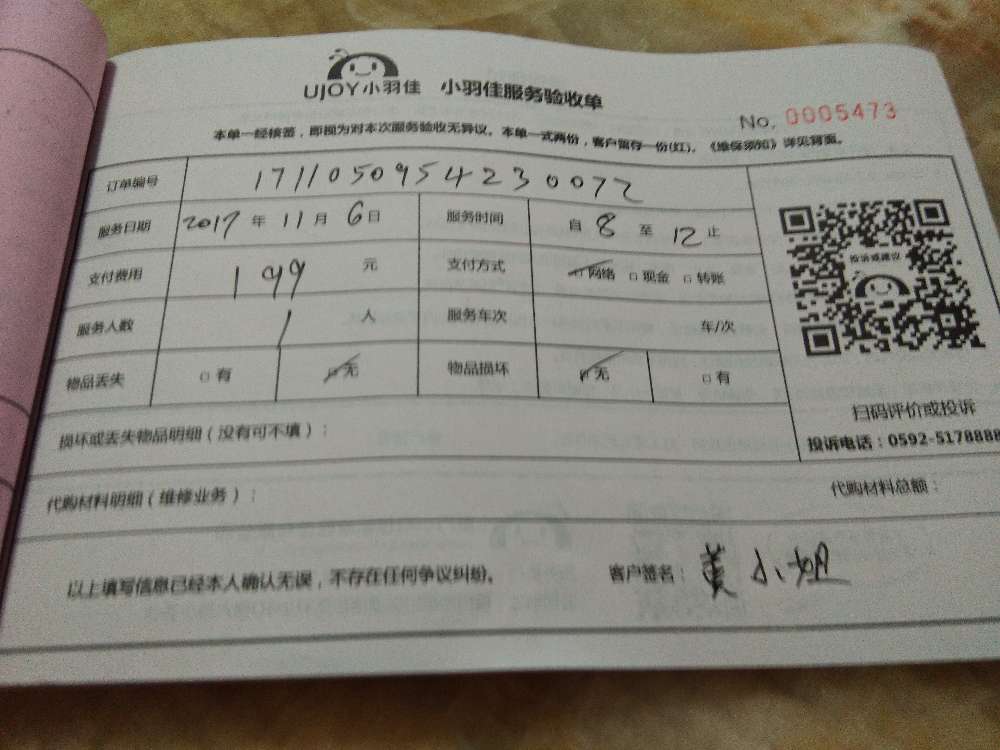 UJOY小羽佳 小羽佳服务验收单
No. 0005473
本单一经核签，即视为对本次服务验收无异议。本单一式两份，客户留存一份(红)。《维保须知》详见背面。
订单编号 1711050954230072
服务日期 2017 年 11 月 6 日 服务时间 自 8 至 12 止
支付费用 199 元 支付方式 网络 □ 现金 □ 转账
服务人数 1 人 服务车次 车/次
物品丢失 □ 有 无 物品损坏 无 □ 有
投诉或建议
扫码评价或投诉
投诉电话：0592-5178888
损坏或丢失物品明细（没有可不填）：
代购材料明细（维修业务）： 代购材料总额：
以上填写信息已经本人确认无误，不存在任何争议纠纷。 客户签名： 小姐